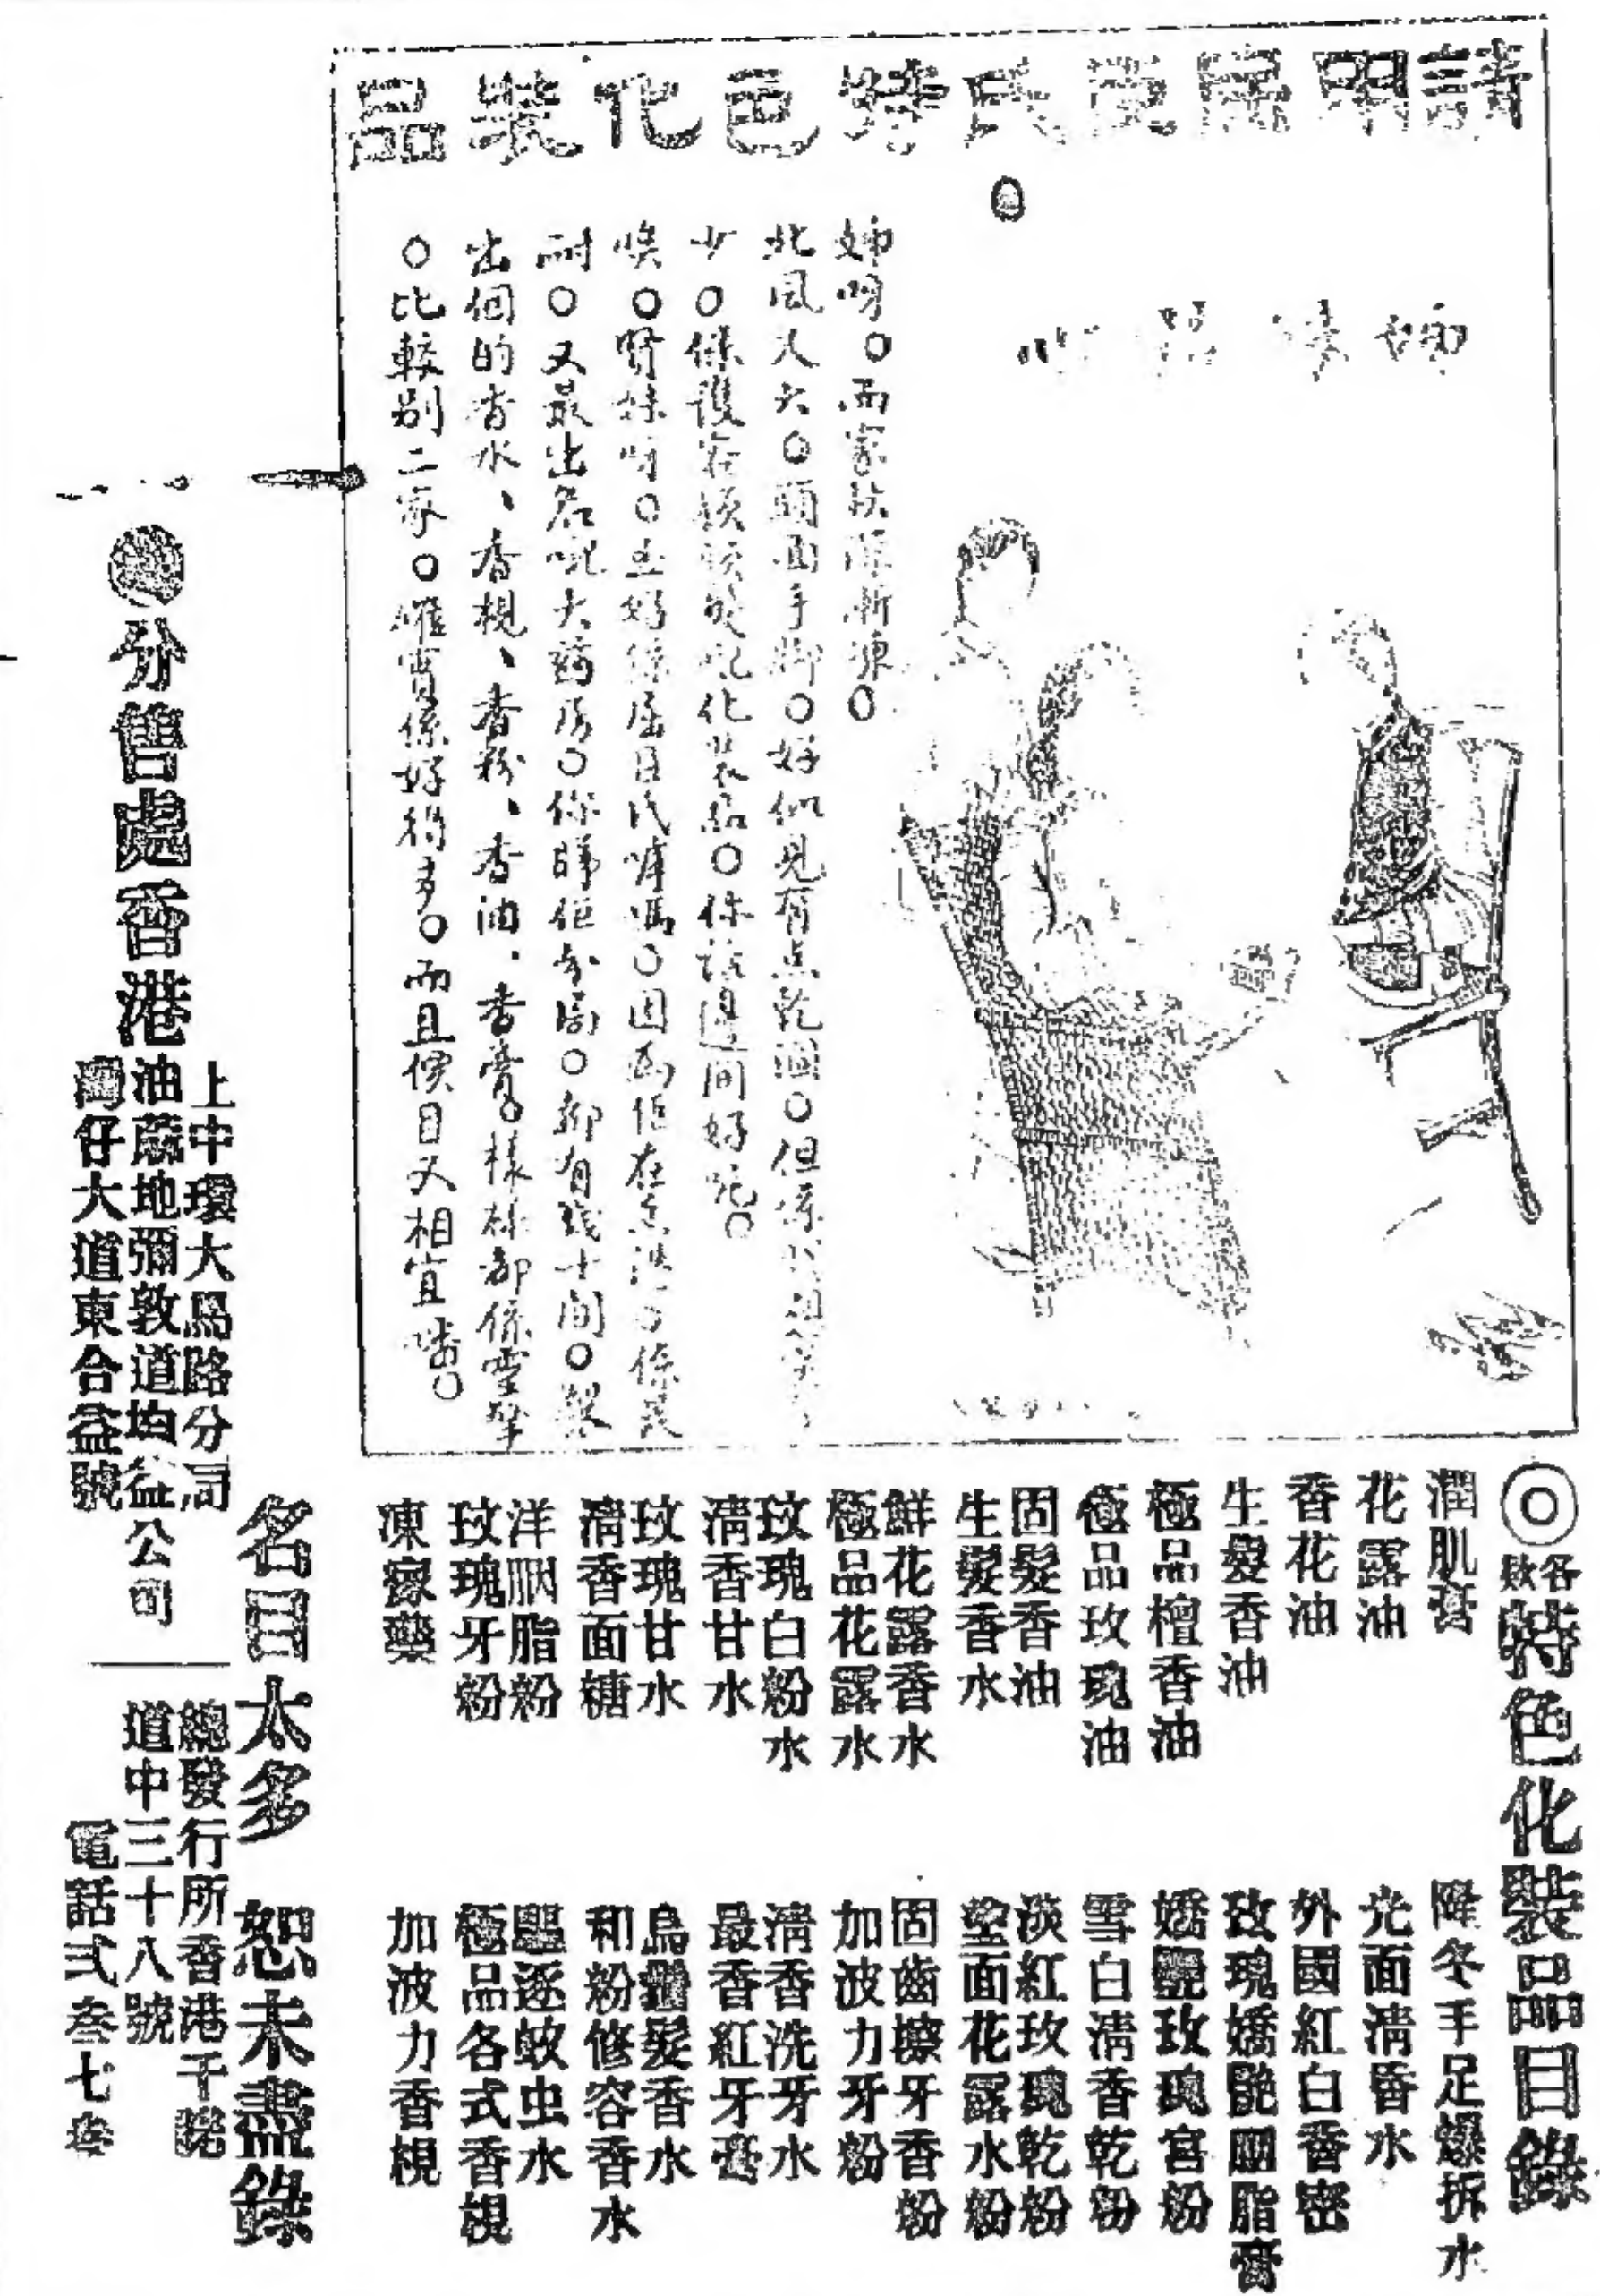 請用屈臣氏特色化裝品
姊妹
姊呀○而家秋深漸凍○
北風又大○頭面手脚○好似見有点乾涸○但係
少○保護容顏 化裝品○你話邊間好呢○
唉○賢妹呀○至好係屈臣氏嘑嗎○因為佢在香港○係最
耐○又最出名呢大葯房○你睇佢分局○都有幾十間○製
出個的香水、香梘、香粉、香油、香膏。樣樣都係
○比較別二家○確實係好得多○而且價目又相宜𠻹○
◎各欵特色化裝品目錄
潤肌膏
花露油
香花油
生髮香油
極品檀香油
極品玫瑰油
固髮香油
生髮香水
鮮花露香水
極品花露水
玫瑰白粉水
清香甘水
玫瑰甘水
清香面糖
洋胭脂粉
玫瑰牙粉
凍瘃藥
降冬手足爆拆水
光面清香水
外國紅白香密
玫瑰嬌艷胭脂膏
嬌艷玫瑰宮粉
雪白清香乾粉
淡紅玫瑰乾粉
塗面花露水粉
固齒擦牙香粉
加波力牙粉
清香洗牙水
最香紅牙膏
烏鬚髮香水
和粉修容香水
驅逐蚊虫水
極品各式香梘
加波力香梘
名目太多 恕未盡錄
分售處香港
上中環大馬路分局
油蔴地彌敦道均益公司
灣仔大道東合益號
總發行所香港干諾
道中三十八號
電話弍叁七叁